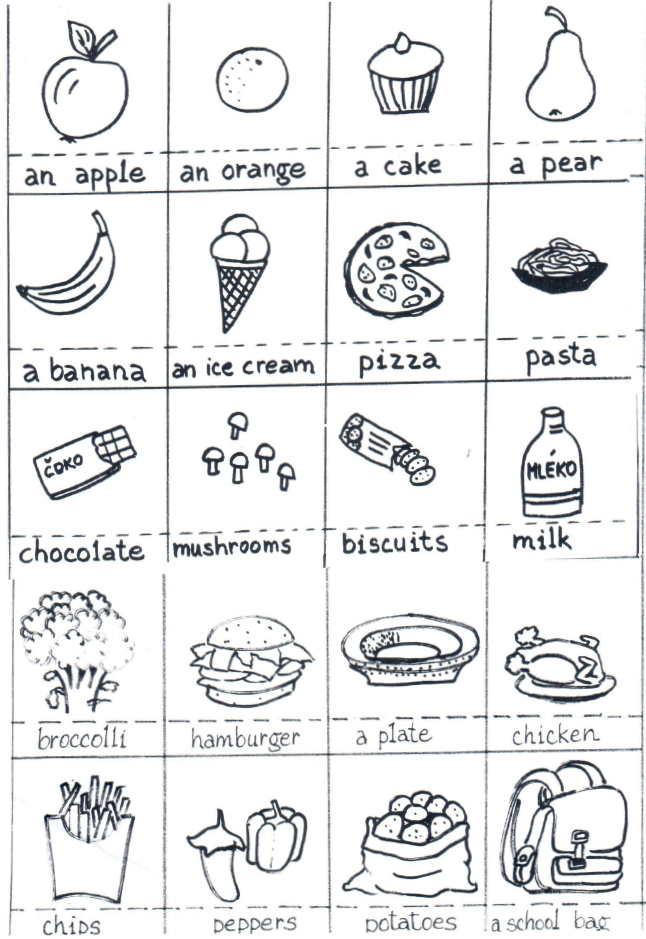 an apple
an orange
a cake
a pear
a banana
an ice cream
pizza
pasta
ČOKO
MLÉKO
chocolate
mushrooms
biscuits
milk
broccolli
hamburger
a plate
chicken
chips
peppers
potatoes
a school bag